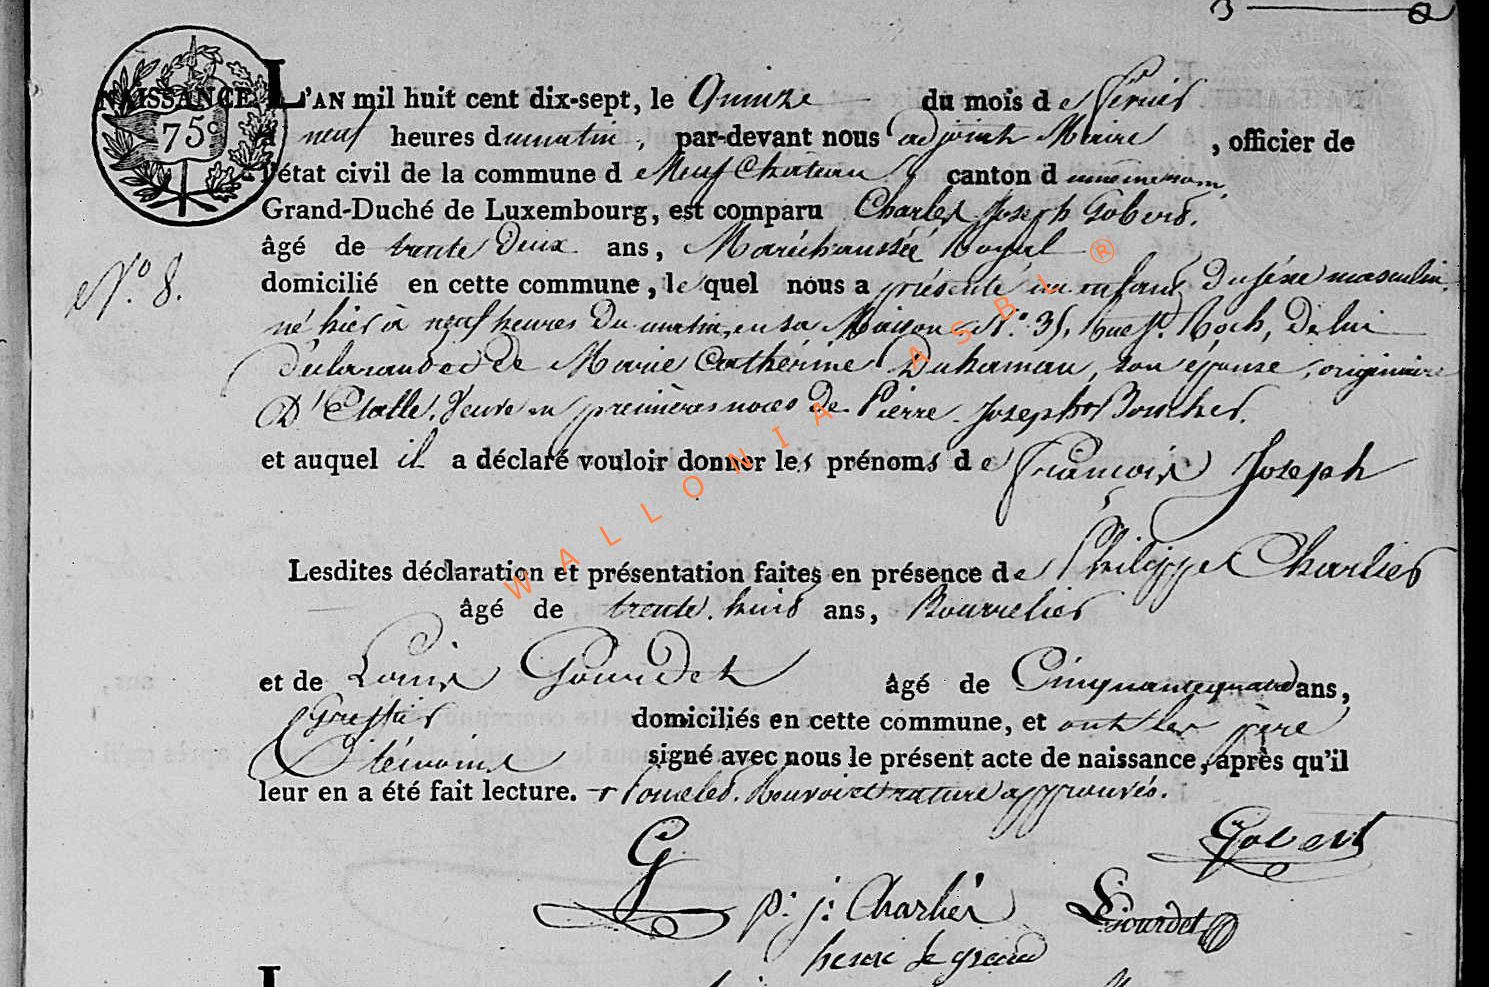 NAISSANCE.
75c
N.º 8.
L'AN mil huit cent dix-sept, le Quinze du mois de fevrier
à neuf heures du matin, par-devant nous adjoint Maire, officier de
l'état civil de la commune de Neufchateau canton d
Grand-Duché de Luxembourg, est comparu Charles Joseph Gobert.
âgé de trente deux ans, Maréchaussée Royal
domicilié en cette commune, lequel nous a présenté un enfant du séxe masculin,
né hier à neuf heures du matin, en sa Maison N.º 35, rue St. Roch, de lui
déclarant et de Marie Cathérine Duhamau, son épouse, originaire
D'Etalle, veuve en premières noces de Pierre Joseph
et auquel il a déclaré vouloir donner les prénoms de François Joseph
Lesdites déclaration et présentation faites en présence de Philippe Charlier
âgé de trente huit ans, Bourrelier
et de Louis Gourdet âgé de Cinquante quatre ans,
Greffier domiciliés en cette commune, et ont les père
& témoins signé avec nous le présent acte de naissance, après qu'il
leur en a été fait lecture. approuvés.
Gobert
G
p. j. Charlier Gourdet
henri le grand
WALLONIA ASBL ®